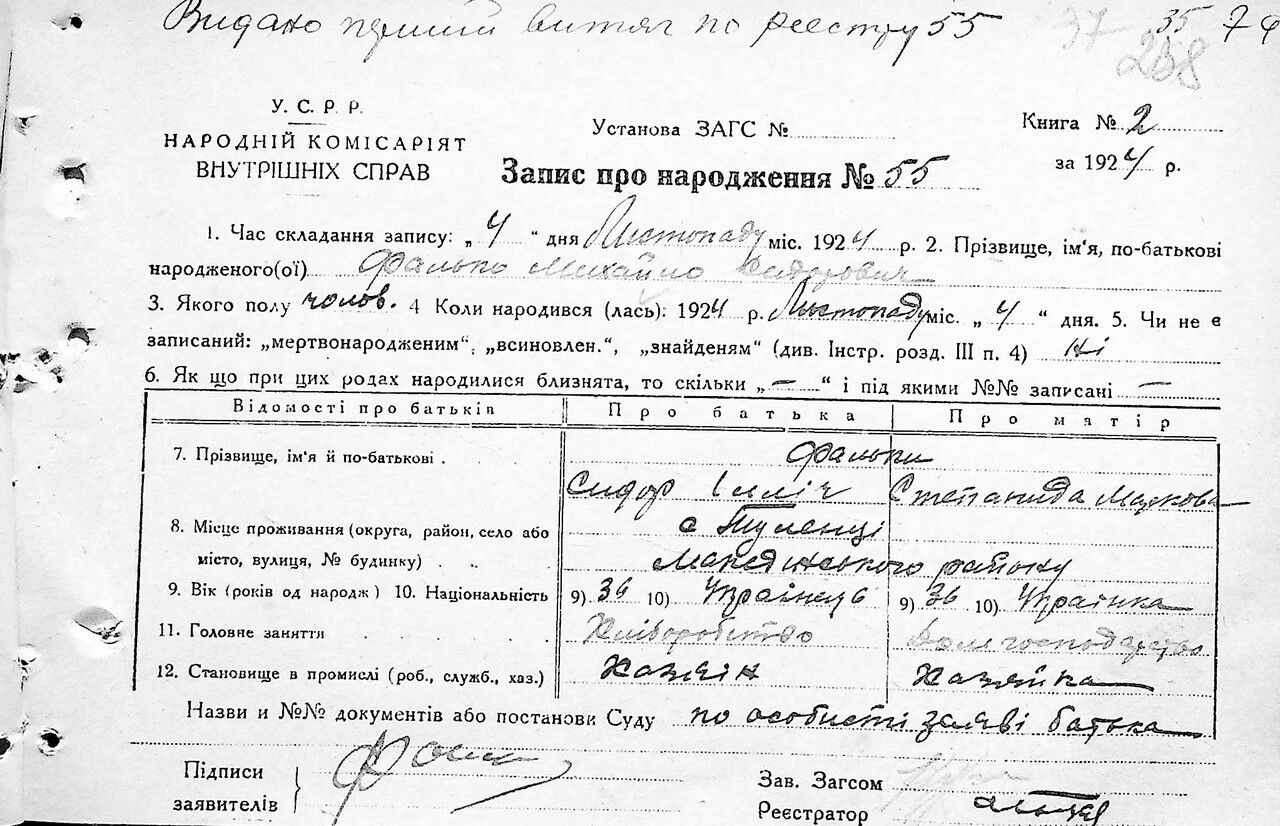 Видано перший витяг по реєстру 55
37 35 7
268
У. С. Р. Р.
НАРОДНІЙ КОМІСАРІЯТ
ВНУТРІШНІХ СПРАВ
Установа ЗАГС №
Книга № 2
за 1924 р.
Запис про народження № 55
1. Час складання запису: „ 4 “ дня Листопаду міс. 1924 р. 2. Прізвище, ім'я, по-батькові
народженого(ої) Фалько Михайло Сидорович
3. Якого полу чолов. 4 Коли народився (лась): 1924 р. Листопаду міс. „ 4 “ дня. 5. Чи не є
записаний: „мертвонародженим“, „всиновлен.“, „знайденям“ (див. Інстр. розд. III п. 4) Ні
6. Як що при цих родах народилися близнята, то скільки „ — “ і під якими №№ записані —
Відомості про батьків Про батька Про матір
7. Прізвище, ім'я й по-батькові . Фальки
Сидор Ілліч Степанида Маркова
8. Місце проживання (округа, район, село або с Туленці
місто, вулиця, № будинку) . . району
9. Вік (років од народж) 10. Національність 9) 36 10) Українець 9) 36 10) Українка
11. Головне заняття . . . . . Хліборобство Дом господарство
12. Становище в промислі (роб., служб., хаз.) Хазяїн Хазяйка
Назви и №№ документів або постанови Суду по особисті заяві батька
Підписи
заявителів
Зав. Загсом
Реєстратор